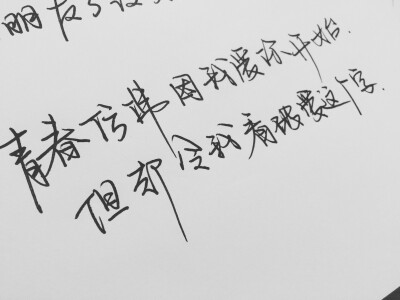 朋友
青春仿佛因我爱你开始.
但却令我看破爱这个字.